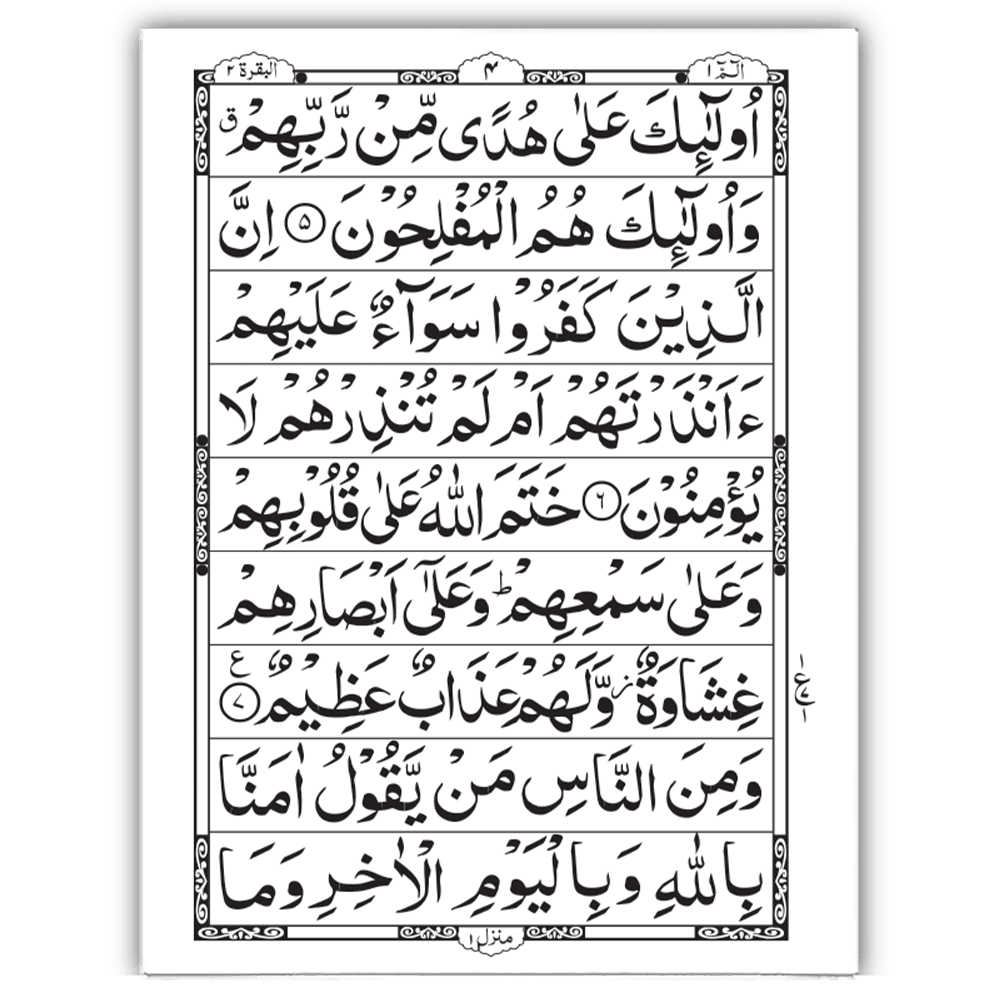 الٓمّٓ ۱
۴
البقرة ۲
اُولٰٓئِكَ عَلٰى هُدًى مِّنْ رَّبِّهِمْ ق
وَاُولٰٓئِكَ هُمُ الْمُفْلِحُوْنَ ۵ اِنَّ
الَّذِيْنَ كَفَرُوْا سَوَآءٌ عَلَيْهِمْ
ءَاَنْذَرْتَهُمْ اَمْ لَمْ تُنْذِرْهُمْ لَا
يُؤْمِنُوْنَ ۶ خَتَمَ اللّٰهُ عَلٰى قُلُوْبِهِمْ
وَعَلٰى سَمْعِهِمْ ط وَعَلٰٓى اَبْصَارِهِمْ
غِشَاوَةٌ ز وَّلَهُمْ عَذَابٌ عَظِيْمٌ ۷ ع
وَمِنَ النَّاسِ مَنْ يَّقُوْلُ اٰمَنَّا
بِاللّٰهِ وَبِالْيَوْمِ الْاٰخِرِ وَمَا
منزل ۱